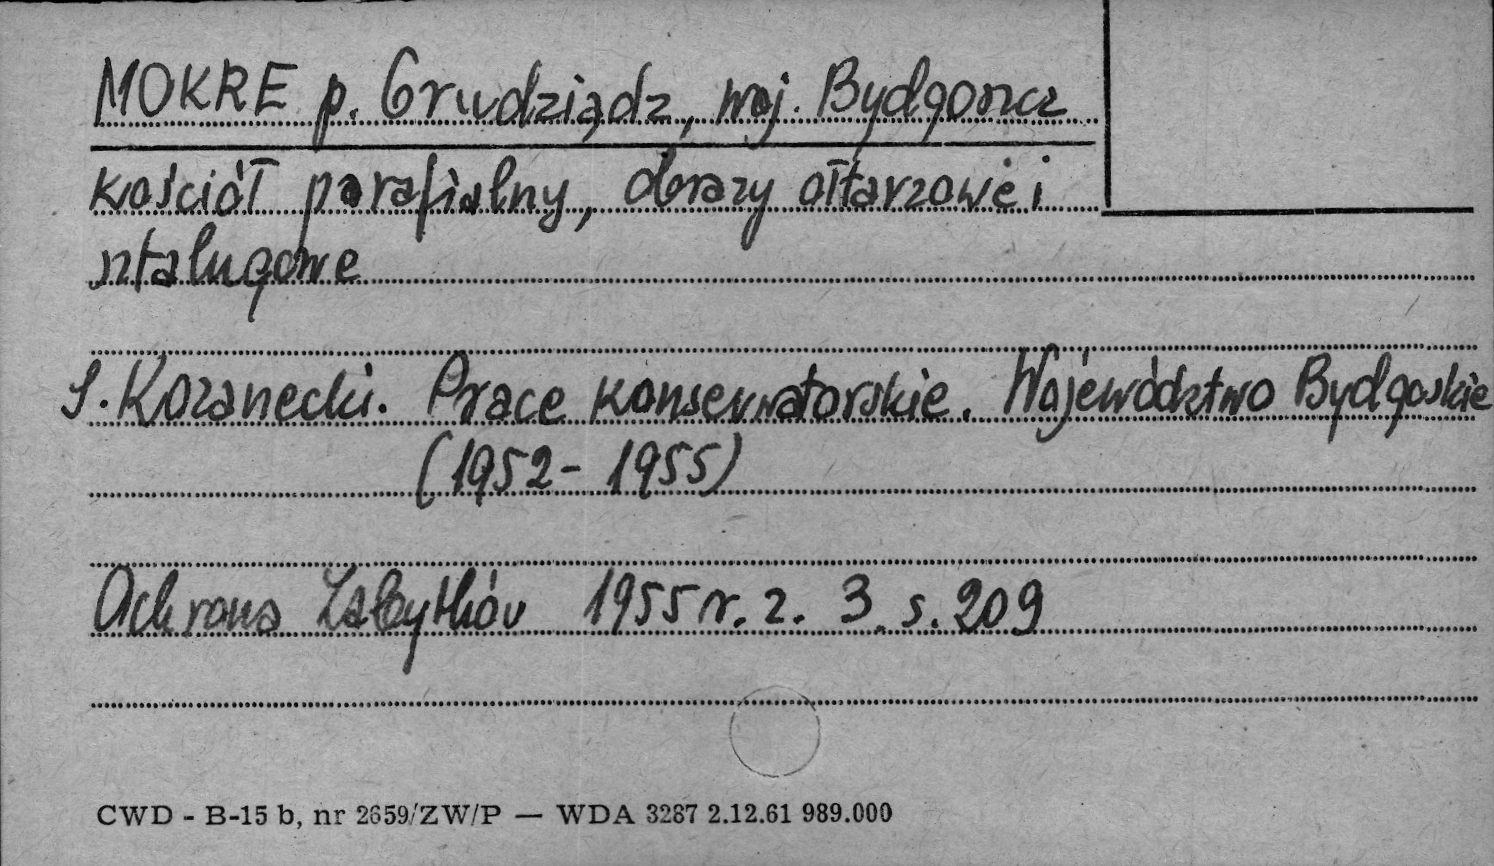 MOKRE p. Grudziądz, woj. Bydgoszcz
kościół parafialny, obrazy ołtarzowe i
sztalugowe
J. Kozanecki. Prace konserwatorskie. Województwo Bydgoskie
(1952 - 1955)
Ochrona Zabytków 1955 r. z. 3 s. 209
CWD - B-15 b, nr 2659/ZW/P — WDA 3287 2.12.61 989.000